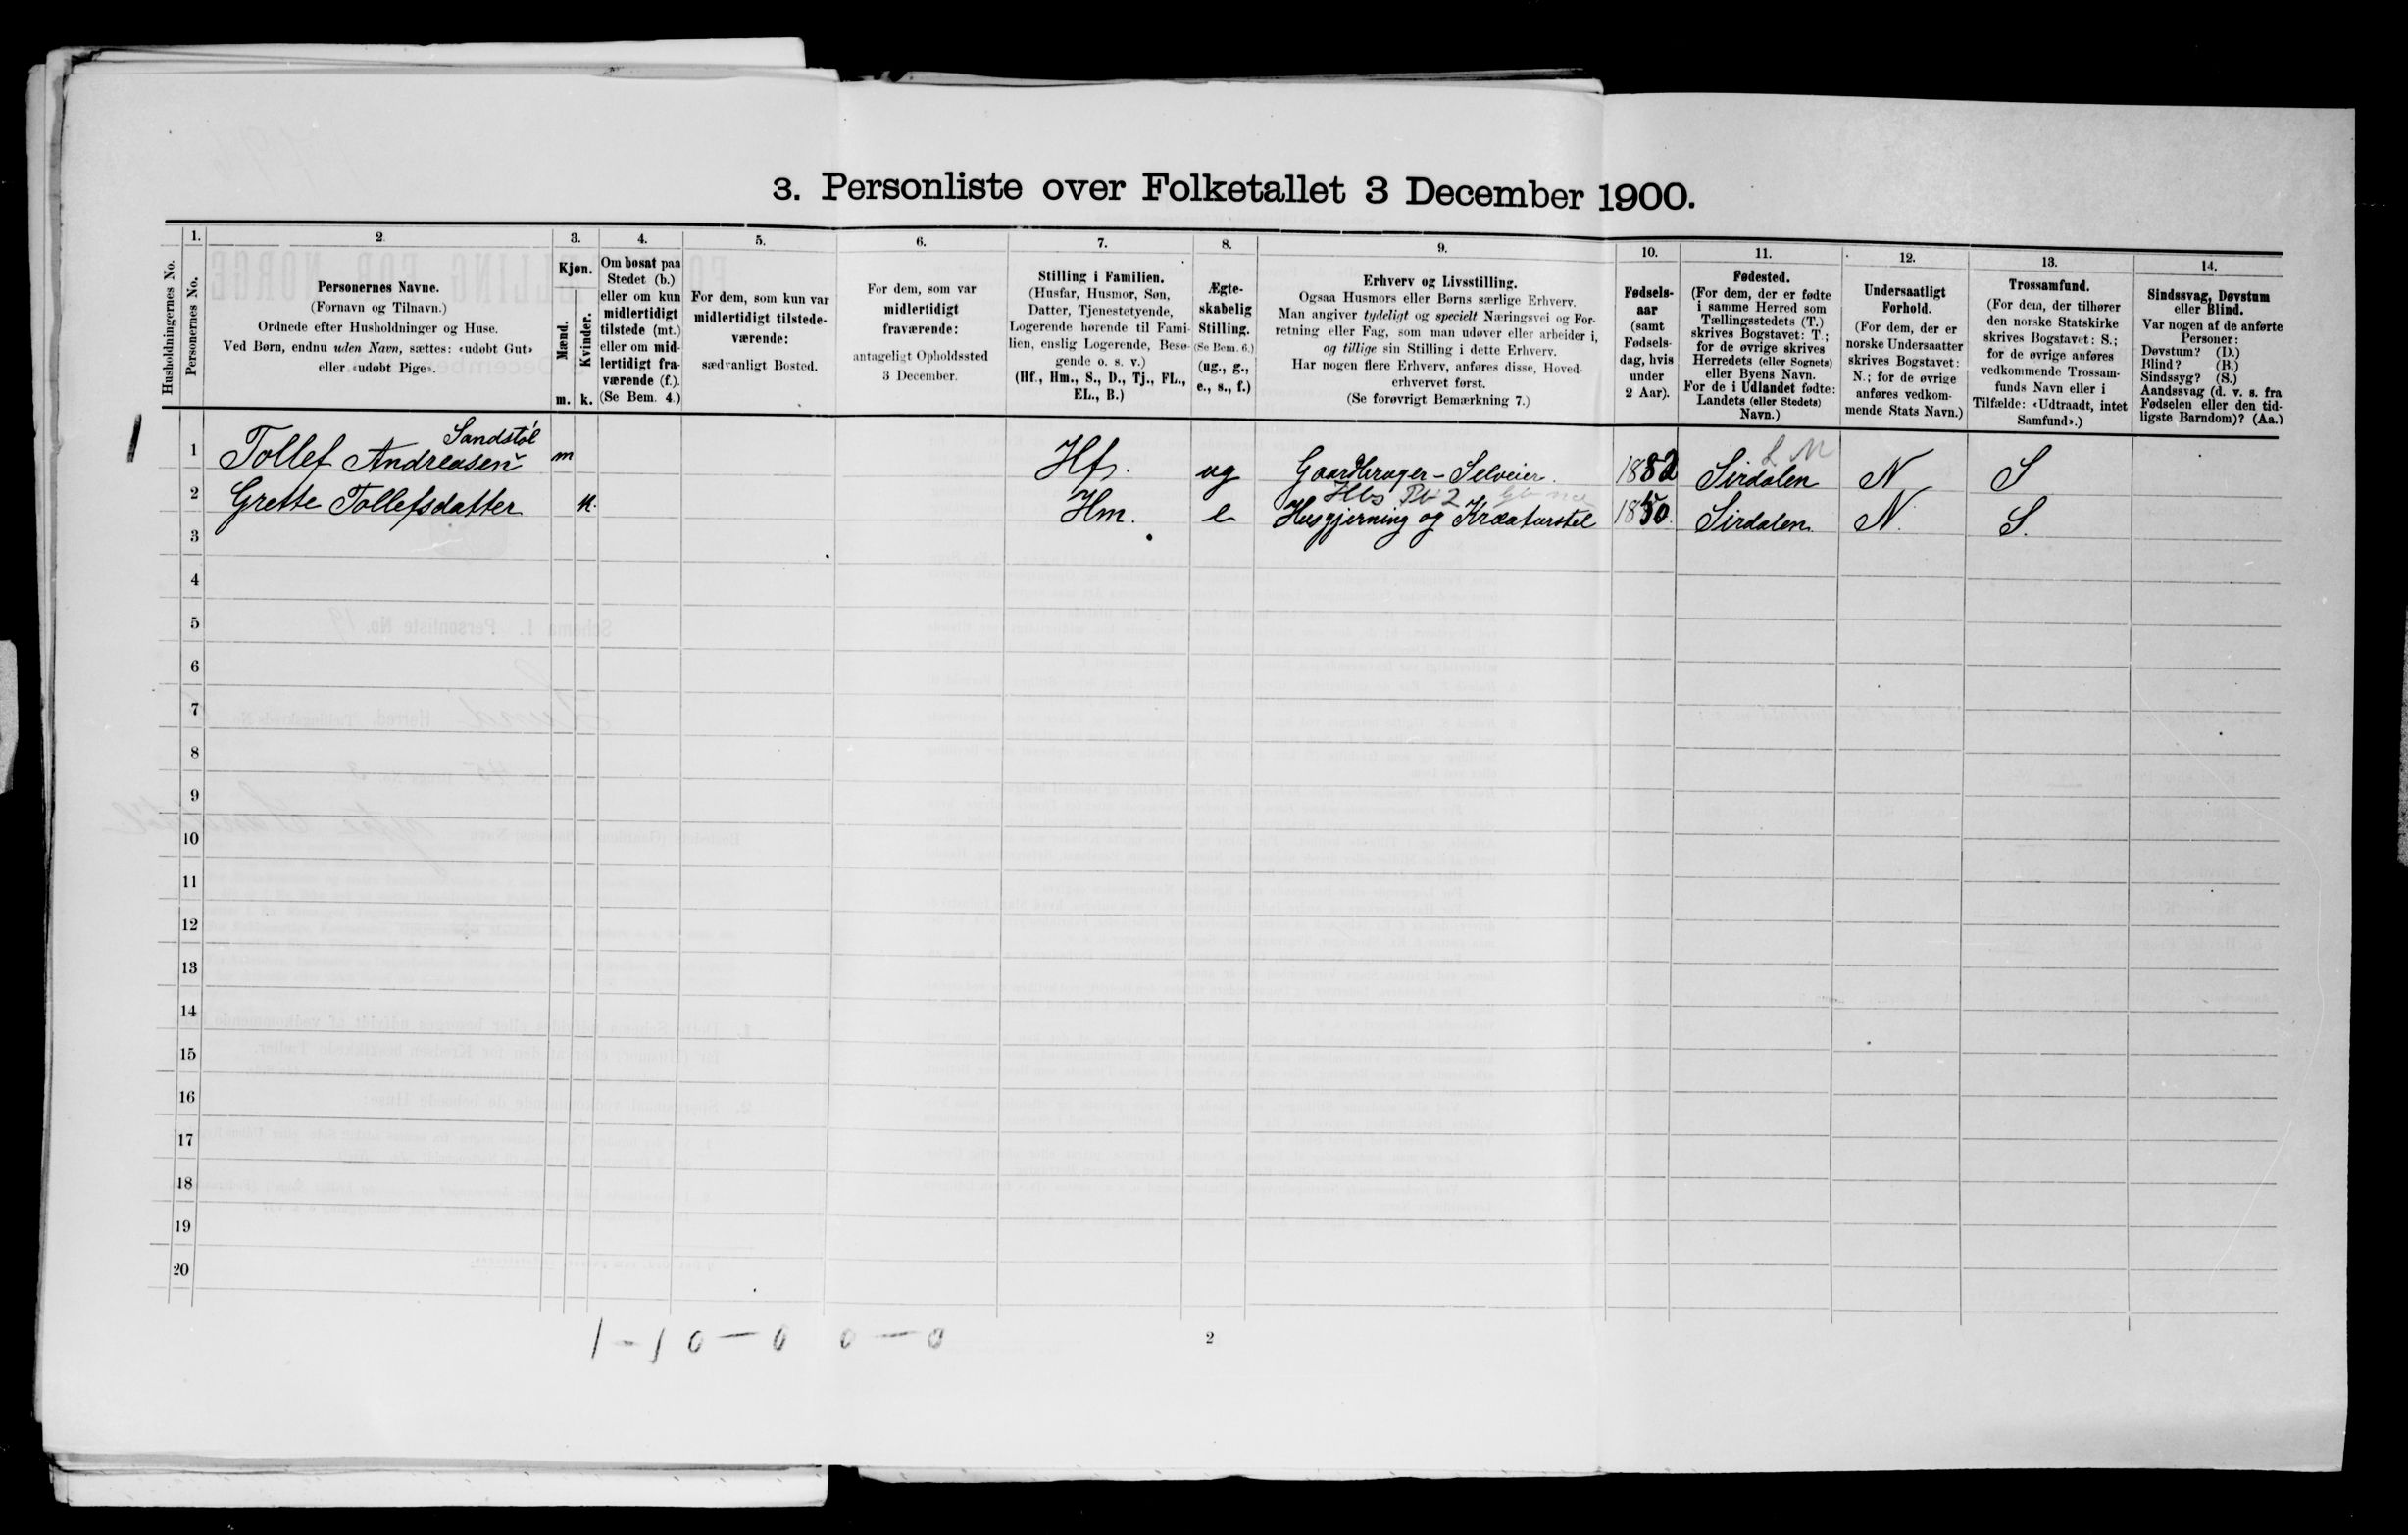 3. Personliste over Folketallet 3 December 1900.
Husholdningernes No.
1.
Personernes No.
2
Personernes Navne.
(Fornavn og Tilnavn.)
Ordnede efter Husholdninger og Huse.
Ved Børn, endnu uden Navn, sættes: «udøbt Gut»
eller «udøbt Pige».
3.
Kjøn.
Mænd.
Kvinder.
m. k.
4.
Om bosat paa
Stedet (b.)
eller om kun
midlertidigt
tilstede (mt.)
eller om mid-
lertidigt fra-
værende (f.).
(Se Bem. 4.)
5.
For dem, som kun var
midlertidigt tilstede-
værende:
sædvanligt Bosted.
6.
For dem, som var
midlertidigt
fraværende:
antageligt Opholdssted
3 December.
7.
Stilling i Familien.
(Husfar, Husmor, Søn,
Datter, Tjenestetyende,
Logerende hørende til Fami-
lien, enslig Logerende, Besø-
gende o. s. v.)
(Hf., Hm., S., D., Tj., FL.,
EL., B.)
8.
Ægte-
skabelig
Stilling.
(Se Bem. 6.)
(ug., g.,
e., s., f.)
9.
Erhverv og Livsstilling.
Ogsaa Husmors eller Børns særlige Erhverv.
Man angiver tydeligt og specielt Næringsvei og For-
retning eller Fag, som man udøver eller arbeider i,
og tillige sin Stilling i dette Erhverv.
Har nogen flere Erhverv, anføres disse, Hoved-
erhvervet først.
(Se forøvrigt Bemærkning 7.)
10.
Fødsels-
aar
(samt
Fødsels-
dag, hvis
under
2 Aar).
11.
Fødested.
(For dem, der er fødte
i samme Herred som
Tællingsstedets (T.)
skrives Bogstavet: T.;
for de øvrige skrives
Herredets (eller Sognets)
eller Byens Navn.
For de i Udlandet fødte:
Landets (eller Stedets)
Navn.)
12.
Undersaatligt
Forhold.
(For dem, der er
norske Undersaatter
skrives Bogstavet:
N.; for de øvrige
anføres vedkom-
mende Stats Navn.)
13.
Trossamfund.
(For dem, der tilhører
den norske Statskirke
skrives Bogstavet: S.;
for de øvrige anføres
vedkommende Trossam-
funds Navn eller i
Tilfælde: «Udtraadt, intet
Samfund».)
14.
Sindssvag, Døvstum
eller Blind.
Var nogen af de anførte
Personer:
Døvstum? (D.)
Blind? (B.)
Sindssyg? (S.)
Aandssvag (d. v. s. fra
Fødselen eller den tid-
ligste Barndom)? (Aa.)
Sandstøl
1 Tollef Andreasen m Hf. ug Gaardbruger-Selveier. 1882 Sirdalen N S
2 Grette Tollefsdatter k. Hm. e Husgjerning og Kreaturstel 1850. Sirdalen N. S.
3
4
5
6
7
8
9
10
11
12
13
14
15
16
17
18
19
20
1-1 0-0 0-0
2